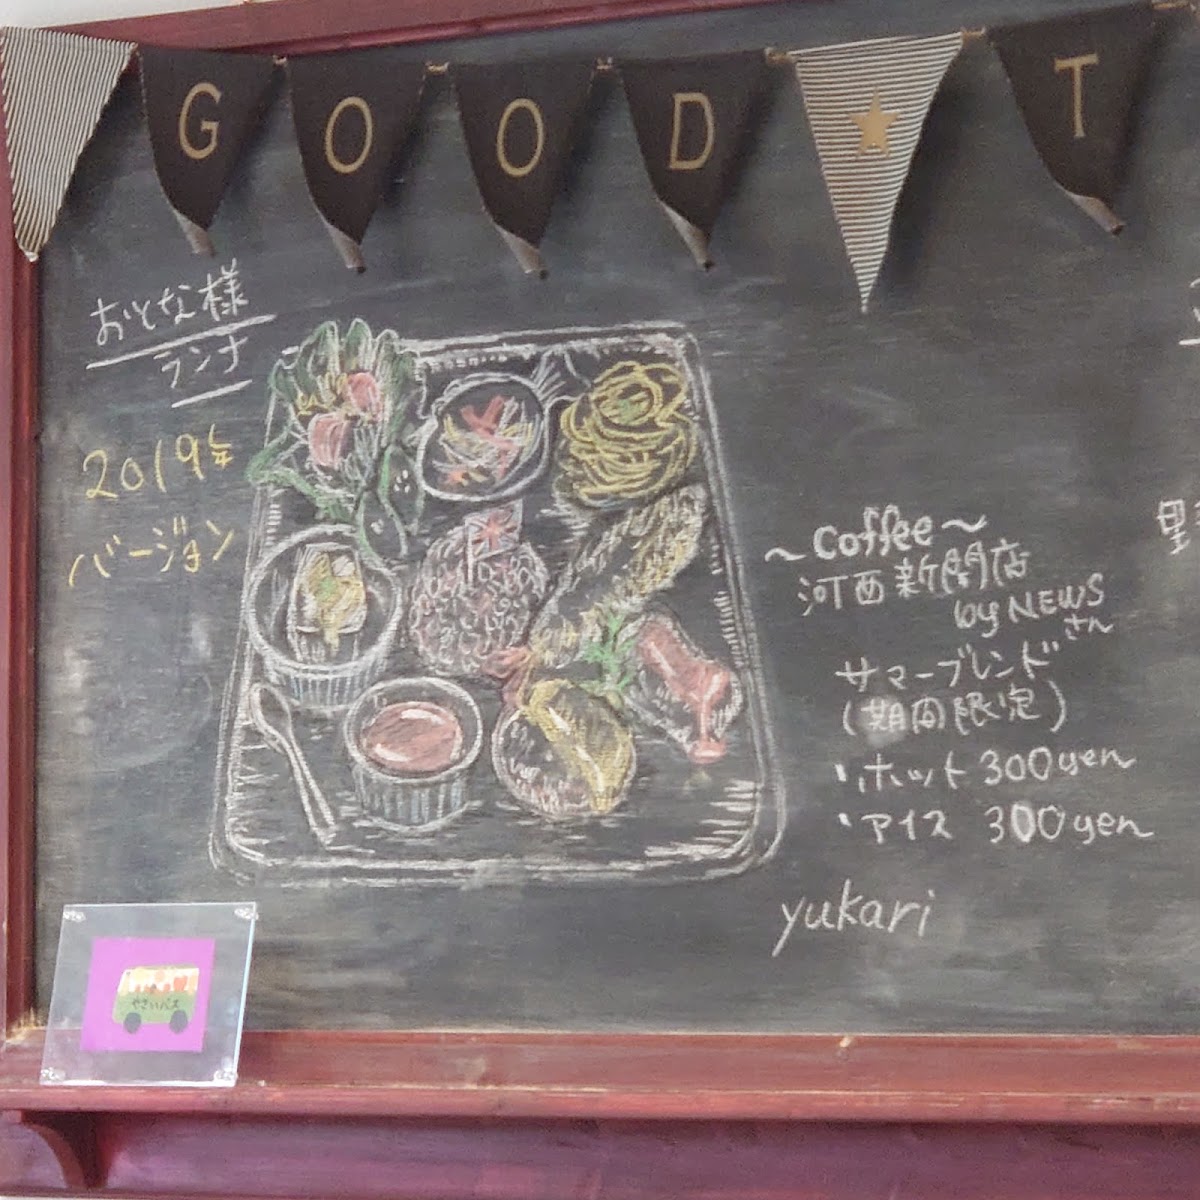 GOOD★T
おとな様
ランチ
2019年
バージョン
~Coffee~
河西新聞店
by NEWS
さん
サマーブレンド
(期間限定)
・ホット 300yen
・アイス 300yen
yukari
やさいバス